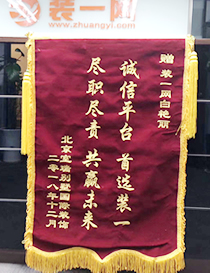 装一网
www.zhuangyi.com
赠装一网白艳丽
诚信平台 首选装一
尽职尽责 共赢未来
北京宣瑞别墅国际装饰
二零一八年十二月